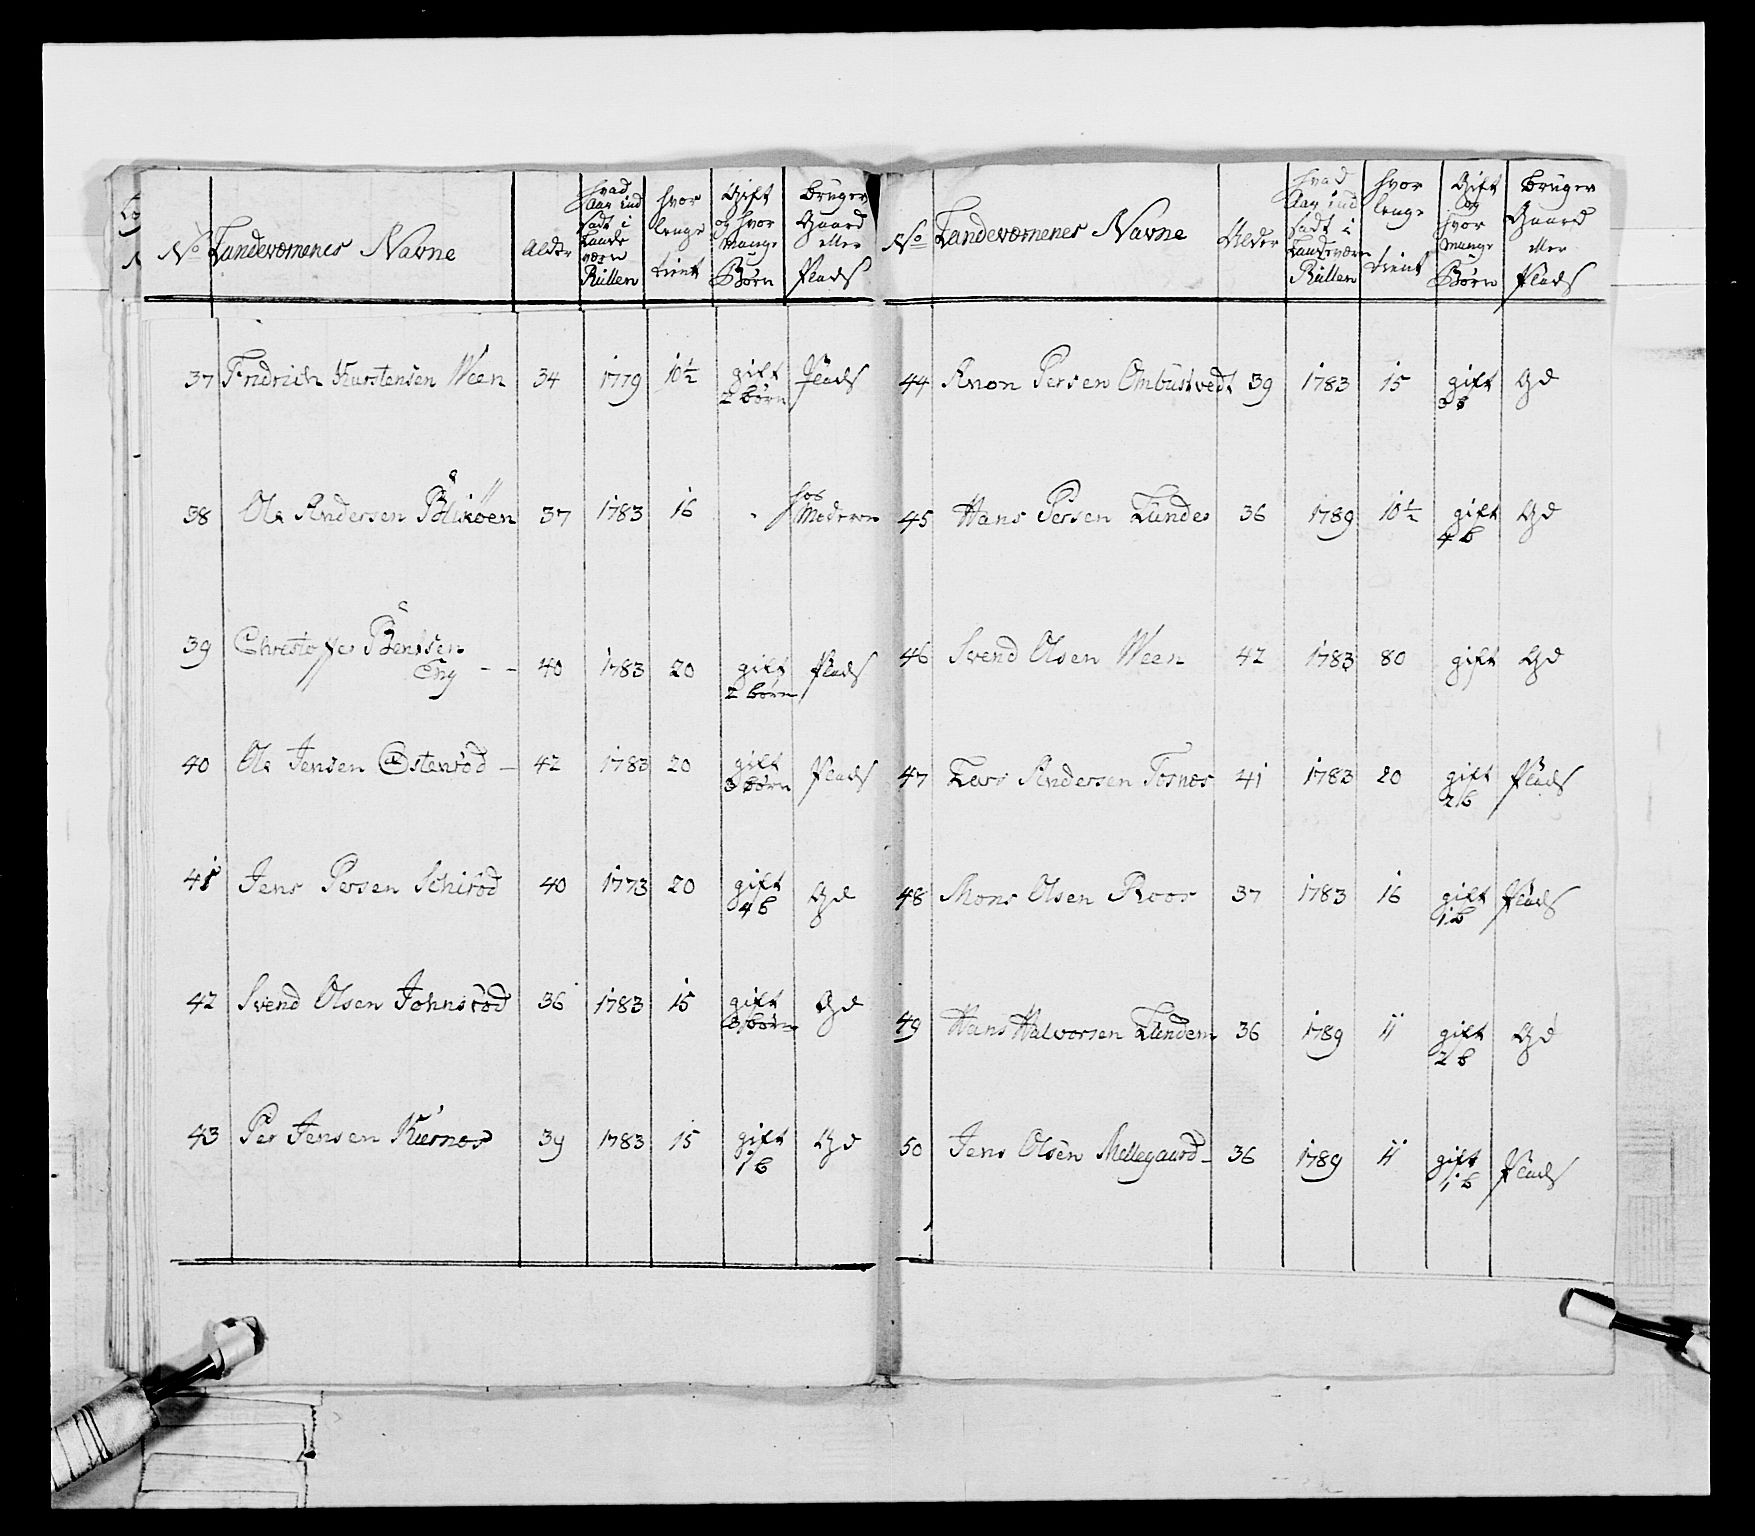 No Landeværnenes Navne Alder hvad Aar ind sadt i Lande værn Rullen hvor lenge tient Gift og hvor mange Børn bruger Gaard eller Plads
37 Fridrich Karstensen Ween 34 1779 10½ gift 2 børn Plads
38 Ole Andersen Blixøen 37 1783 16 - hos Moderen
39 Christoffer Bentsen
Eng - - 40 1783 20 gift 2 børn Plads
40 Ole Jensen Østenrød - 42 1783 20 gift 3 børn Plads
41 Jens Persen Schirød 40 1773 20 gift 4 b Gd
42 Svend Olsen Johnsrød 36 1783 15 gift 3 børn Gd
43 Per Jensen Kiernes 39 1783 15 gift 1 b Gd
No Landeværnenes Navne Alder hvad Aar ind sadt i Landeværn Rullen hvor lenge tient Gift og hvor mange Børn bruger Gaard eller Plads
44 Anon Persen Ombustvedt 39 1783 15 gift 3 b Gd
45 Hans Persen Lunde 36 1789 10½ gift 4 b Gd
46 Svend Olsen Ween 42 1783 80 gift Gd
47 Lars Andersen Tosnes 41 1783 20 gift 2 b Plads
48 Mons Olsen Roos 37 1783 16 gift 1 b Plads
49 Hans Halvorsen Lundem 36 1789 11 gift 2 b Gd
50 Jens Olsen Mellegaard - 36 1789 11 gift 1 b Plads